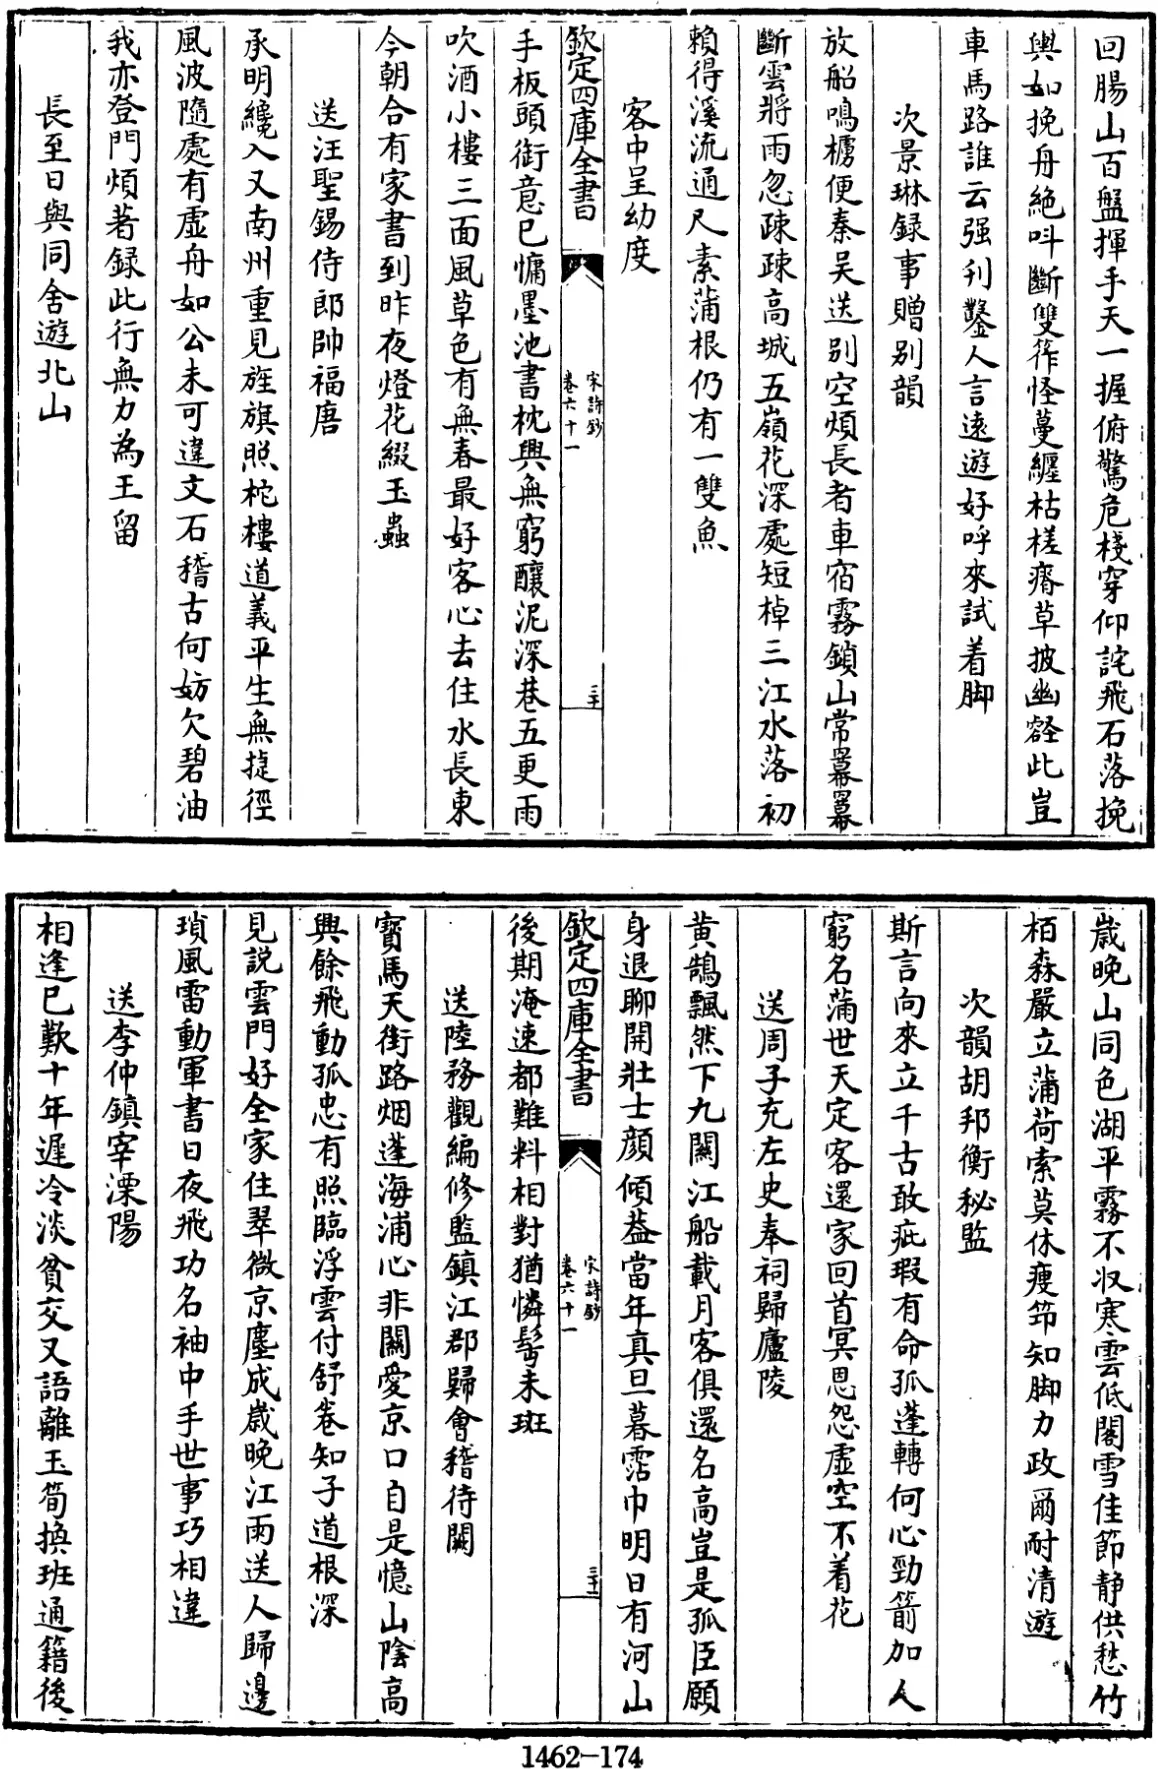 回腸山百盤揮手天一握俯驚危棧穿仰詫飛石落挽
輿如挽舟絶叫斷雙筰怪蔓纒枯槎瘠草披幽壑此豈
車馬路誰云强刋鑿人言遠遊好呼來試着脚
次景琳録事贈别韻
放船鳴櫓便秦吴送别空煩長者車宿霧鎖山常羃羃
斷雲將雨忽疎疎高城五嶺花深處短棹三江水落初
賴得溪流通尺素蒲根仍有一雙魚
客中呈幼度
欽定四庫全書
宋詩鈔
卷六十一
三十
手板頭銜意已慵墨池書枕興無窮釀泥深巷五更雨
吹酒小樓三面風草色有無春最好客心去住水長東
今朝合有家書到昨夜燈花綴玉蟲
送汪聖錫侍郎帥福唐
承明纔入又南州重見旌旗照柁樓道義平生無捷徑
風波隨處有虛舟如公未可違文石稽古何妨欠碧油
我亦登門煩著録此行無力為王留
長至日與同舍遊北山
歲晚山同色湖平霧不收寒雲低閣雪佳節静供愁竹
栢森嚴立蒲荷索莫休瘦筇知脚力政爾耐清遊
次韻胡邦衡秘監
斯言向來立千古敢疵瑕有命孤蓬轉何心勁箭加人
窮名滿世天定客還家回首冥思怨虛空不着花
送周子充左史奉祠歸廬陵
黄鵠飄然下九關江船載月客俱還名高豈是孤臣願
身退聊開壯士顔傾葢當年真旦暮霑巾明日有河山
欽定四庫全書
宋詩鈔
卷六十一
三十一
後期淹速都難料相對猶憐髩未斑
送陸務觀編修監鎮江郡歸會稽待闕
寳馬天街路烟蓬海浦心非關愛京口自是憶山陰高
興餘飛動孤忠有照臨浮雲付舒卷知子道根深
見説雲門好全家住翠微京塵成歲晚江雨送人歸邊
瑣風雷動軍書日夜飛功名袖中手世事巧相違
送李仲鎮宰溧陽
相逢已歎十年遲冷淡貧交又語離玉筍換班通籍後
1462-174